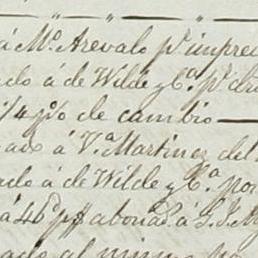 á Mo. Arevalo pr. impre
ado á de Wilde y Ca. pr. dr
1/4 p% de cambio
ado á Va. Martinez del
ado á de Wilde y Ca. por
á 46 p$ abonad. á